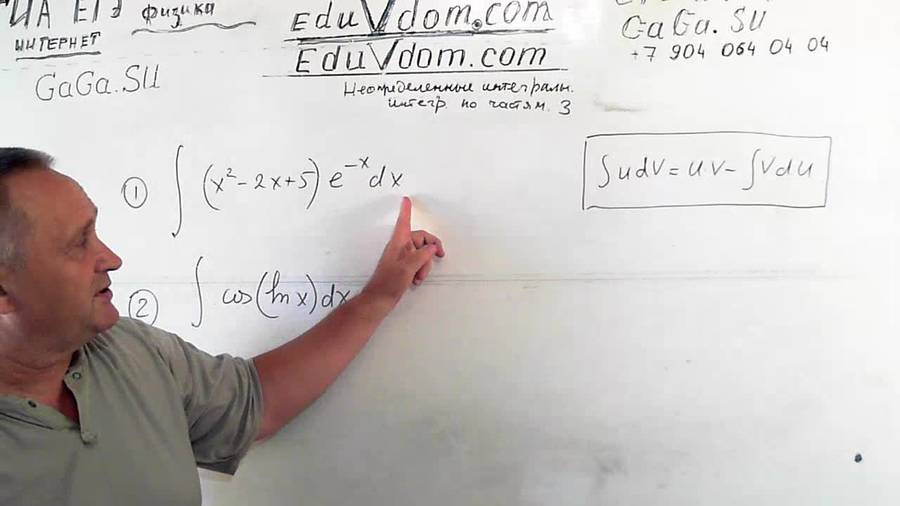 ИА ЕГЭ физика
ИНТЕРНЕТ
GaGa.SU
EduVdom.com
EduVdom.com
Неопределенные интегралы.
интегр. по частям. 3
GaGa.SU
+7 904 064 04 04
① ∫ (x² - 2x + 5) e⁻ˣ dx
∫ u dV = uV - ∫ V du
② ∫ cos(ln x) dx